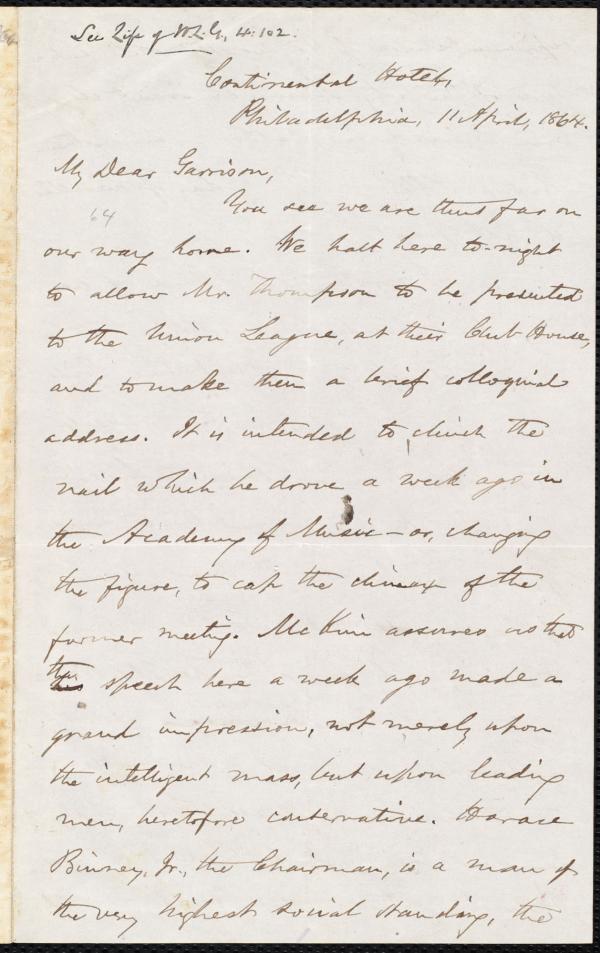 See Life of W.L.G., 4:102.
Continental Hotel,
Philadelphia, 11 April, 1864.
My Dear Garrison,
64
You see we are thus far on
our way home. We halt here to-night
to allow Mr. Thompson to be presented
to the Union League, at their Club House,
and to make them a brief colloquial
address. It is intended to clinch the
nail which he drove a week ago in
the Academy of Music — or, changing
the figure, to cap the climax of the
former meeting. McKim assures us that
the speech here a week ago made a
grand impression, not merely upon
the intelligent mass, but upon leading
men, heretofore conservative. Horace
Binney, Jr., the Chairman, is a man of
the very highest social standing, the